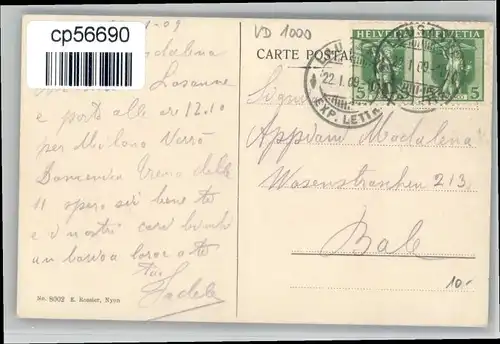 cp56690
1-09
VD 1000
CARTE POSTA
HELVETIA
HELVETIA
5
5
LAUSA
22. I. 09
I. 09
EXP. LETT
Losanne
e parto alle ore 12.10
per Milano Verrò
Domenica Treno delle
11 spero sii bene te
e i nostri cari bimbi
un bacio a te
tuo
Fedele
Signora
Appiani Madalena
Wasenstraschen 213
Bale
10.-
No. 8002 E. Rossier, Nyon